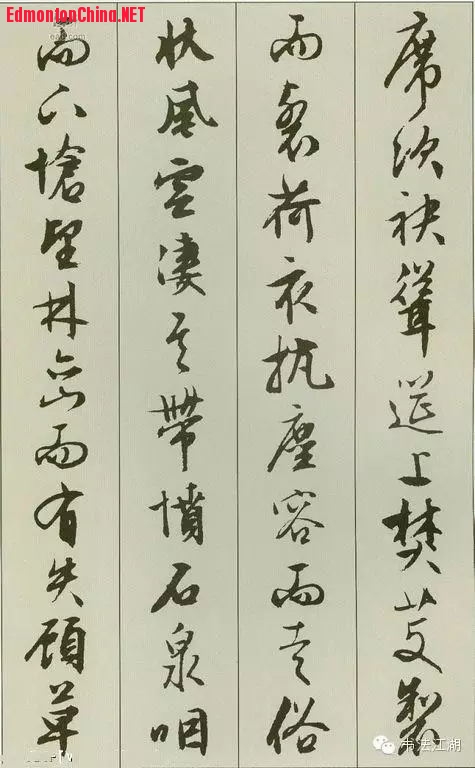 EdmontonChina.NET
席次袂聳筵上焚芰製
而裂荷衣抗塵容而走俗
狀風雲淒其帶憤石泉咽
而下愴望林巒而有失顧草
书法江湖